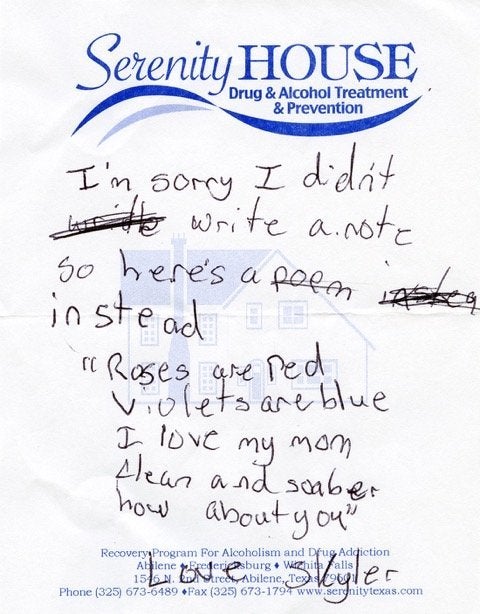 Serenity HOUSE
Drug & Alcohol Treatment
& Prevention
I'm sorry I didn't
write a note
so here's a poem
instead
"Roses are red
violets are blue
I love my mom
clean and soaber
how about you"
Recovery Program For Alcoholism and Drug Addiction
Abilene ♦ Fredericksburg ♦ Wichita Falls
1546 N. 2nd Street, Abilene, Texas 79601
Love Skyler
Phone (325) 673-6489 ♦ Fax (325) 673-1794 www.serenitytexas.com